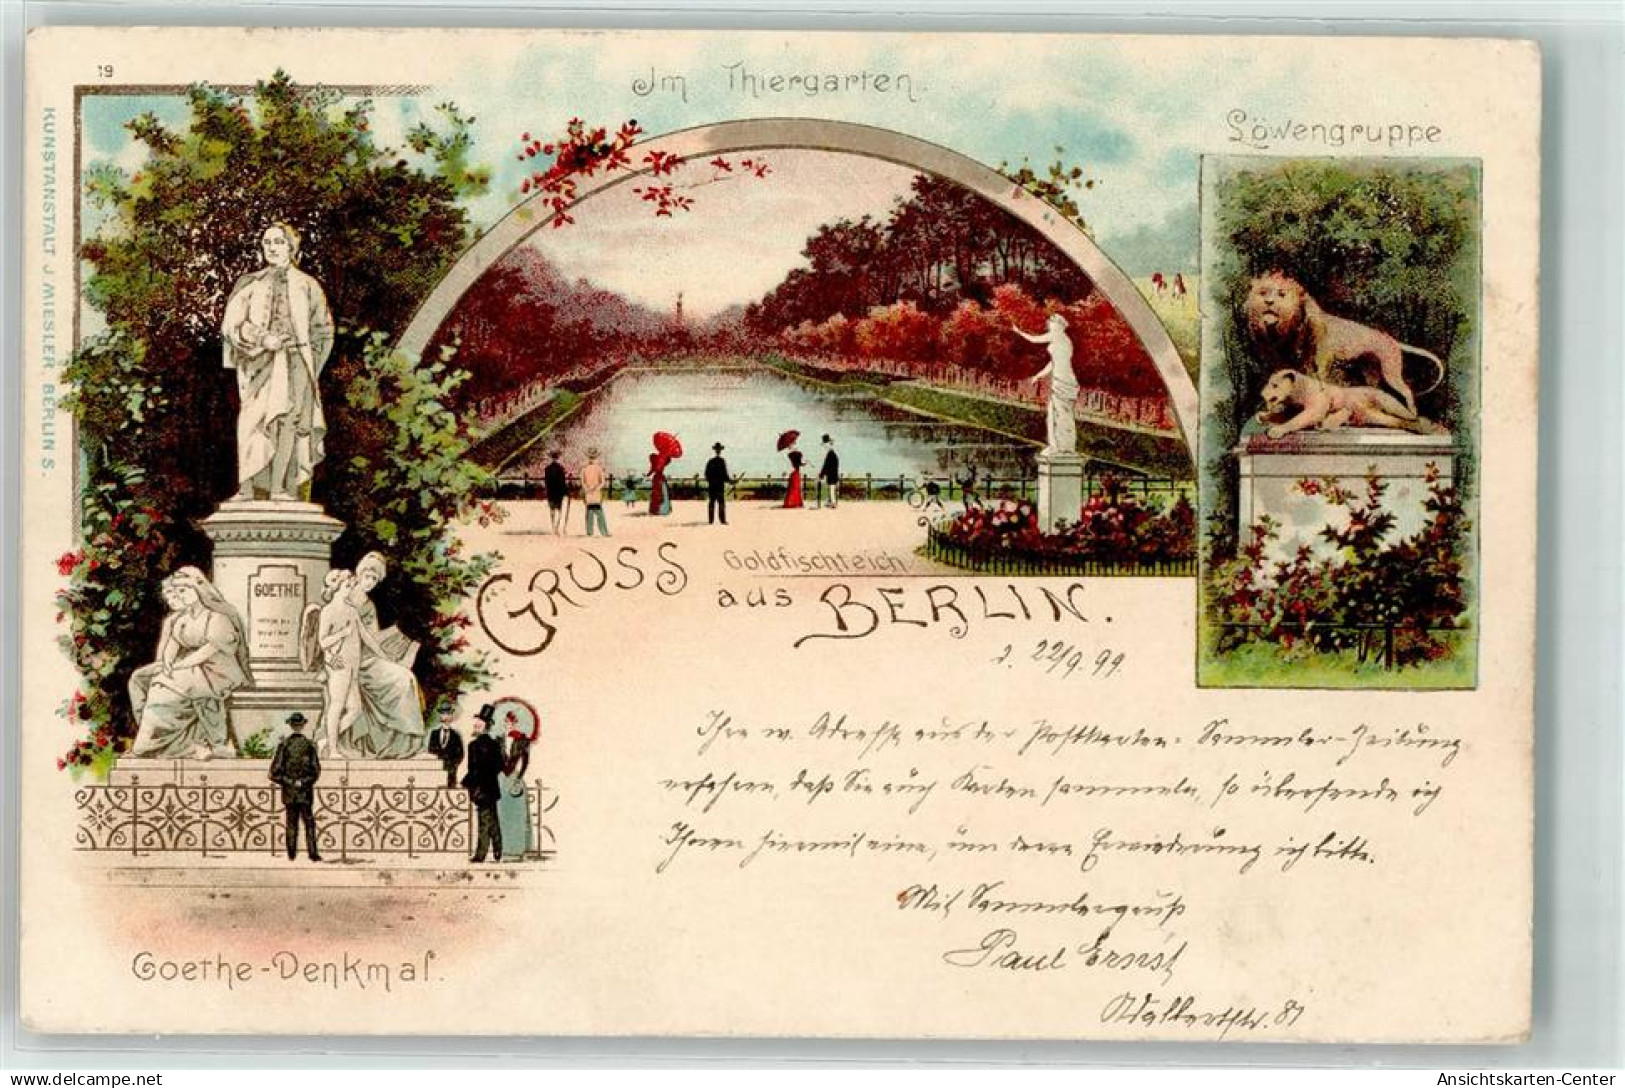 19
Im Thiergarten.
Löwengruppe
KUNSTANSTALT J. MIESLER BERLIN S.
GOETHE
Goldfischteich
GRUSS aus BERLIN.
d. 22/9. 99.
Ihre w. Adresse aus der Postkarten-Sammler-Zeitung
erfahren, daß Sie auch Karten sammeln, so übersende ich
Ihnen hiermit eine, um deren Erwiederung ich bitte.
Mit Sammlergruß
Paul Ernst
Adalbertstr. 81
Goethe-Denkmal.
Ansichtskarten-Center